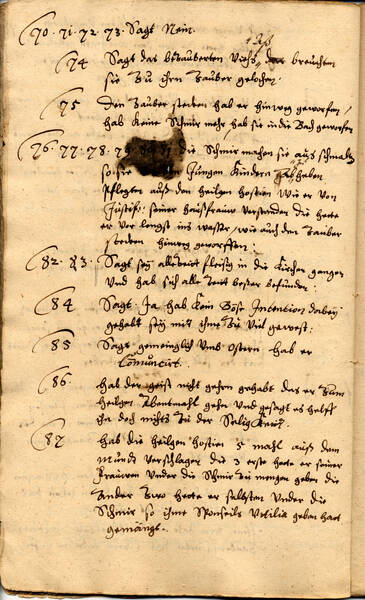 70. 71. 72. 73. Sagt Nein.
74 Sagt das bezauberten Viehs, das breuchten
sie zu ihrn Zauber gelochen.
75 Den Zauber stecken hab er hinweg geworfen,
hab keine Schmir mehr hab sie in die Bach geworfen
76. 77. 78. 79. die Schmir machen sie aus schmaltz
so sie Jungen Kindern haben
Pflegten auß den heiligen hostien wie er von
Justif: seiner haußfrauw verstanden die hette
er vor lengst ins wasser, wie auch den Zauber
stecken hinweg geworffen:
82. 83. Sagt sey allezeit fleisig in die Kirchen gangen
Und hab sich alle Zeit besser befunden:
84 Sagt: Ja hab kein Böse Intention dabey
gehabt sey mit ihme zu viel gewest:
85 Sagt gemeinglich umb Ostern hab er
Communicirt.
86 hab der geist nicht gern gehabt das er zum
heiligen Abentmahl gehn und gesagt es helff
ihn doch nichts zu der Seligkeit.
87 hab die heiligen hostien 5 mahl auß dem
Mundt verschlagen die 3 erste hette er seiner
frauwen under die Schmir zu mengen geben die
ander zwo hette er selbsten under die
Schmir so ihme Sponseils Ottilia geben hatt
gemängt.